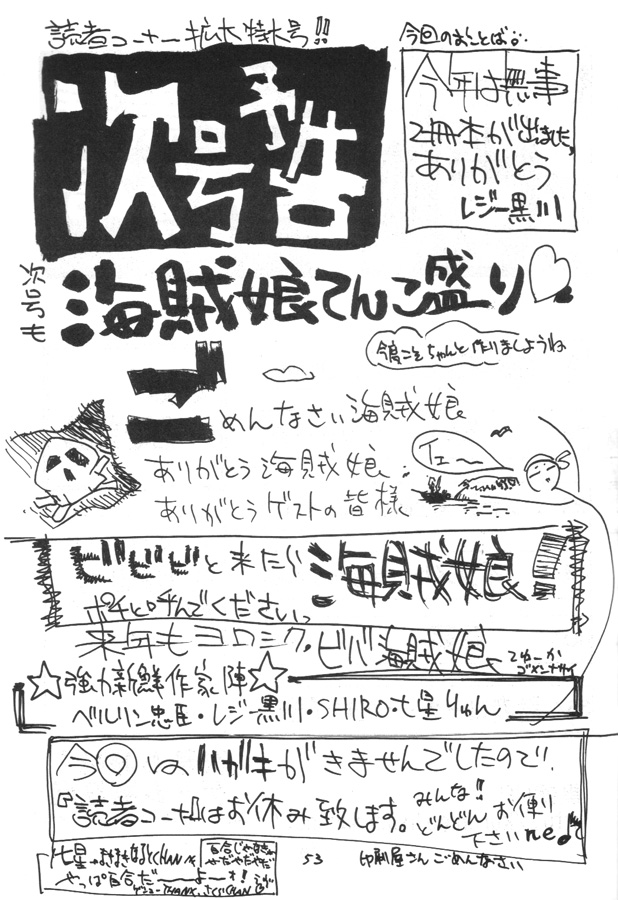 読者コーナー拡大特大号!!
次号予告
今回のまことば
今年は無事
2冊本が出ました。
ありがとう
レジー黒川
次号も
海賊娘てんこ盛り♡
今度こそちゃんと作りましょうね
ごめんなさい海賊娘
ありがとう海賊娘
ありがとうゲストの皆様
イェ〜
ビビビと来たら
海賊娘!
ポチと呼んでください。
来年もヨロシク。ビバ海賊娘
てゆーか
ゴメンナサイ
☆強力新鮮作家陣☆
ベルリン忠臣・レジー黒川・SHIRO・七星りゅん
今回はハガキがきませんでしたので、
『読者コーナー』はお休み致します。
みんな!!
どんどんお便り
下さいne♪
やっぱ百合だ〜よ〜!
53
印刷屋さんごめんなさい